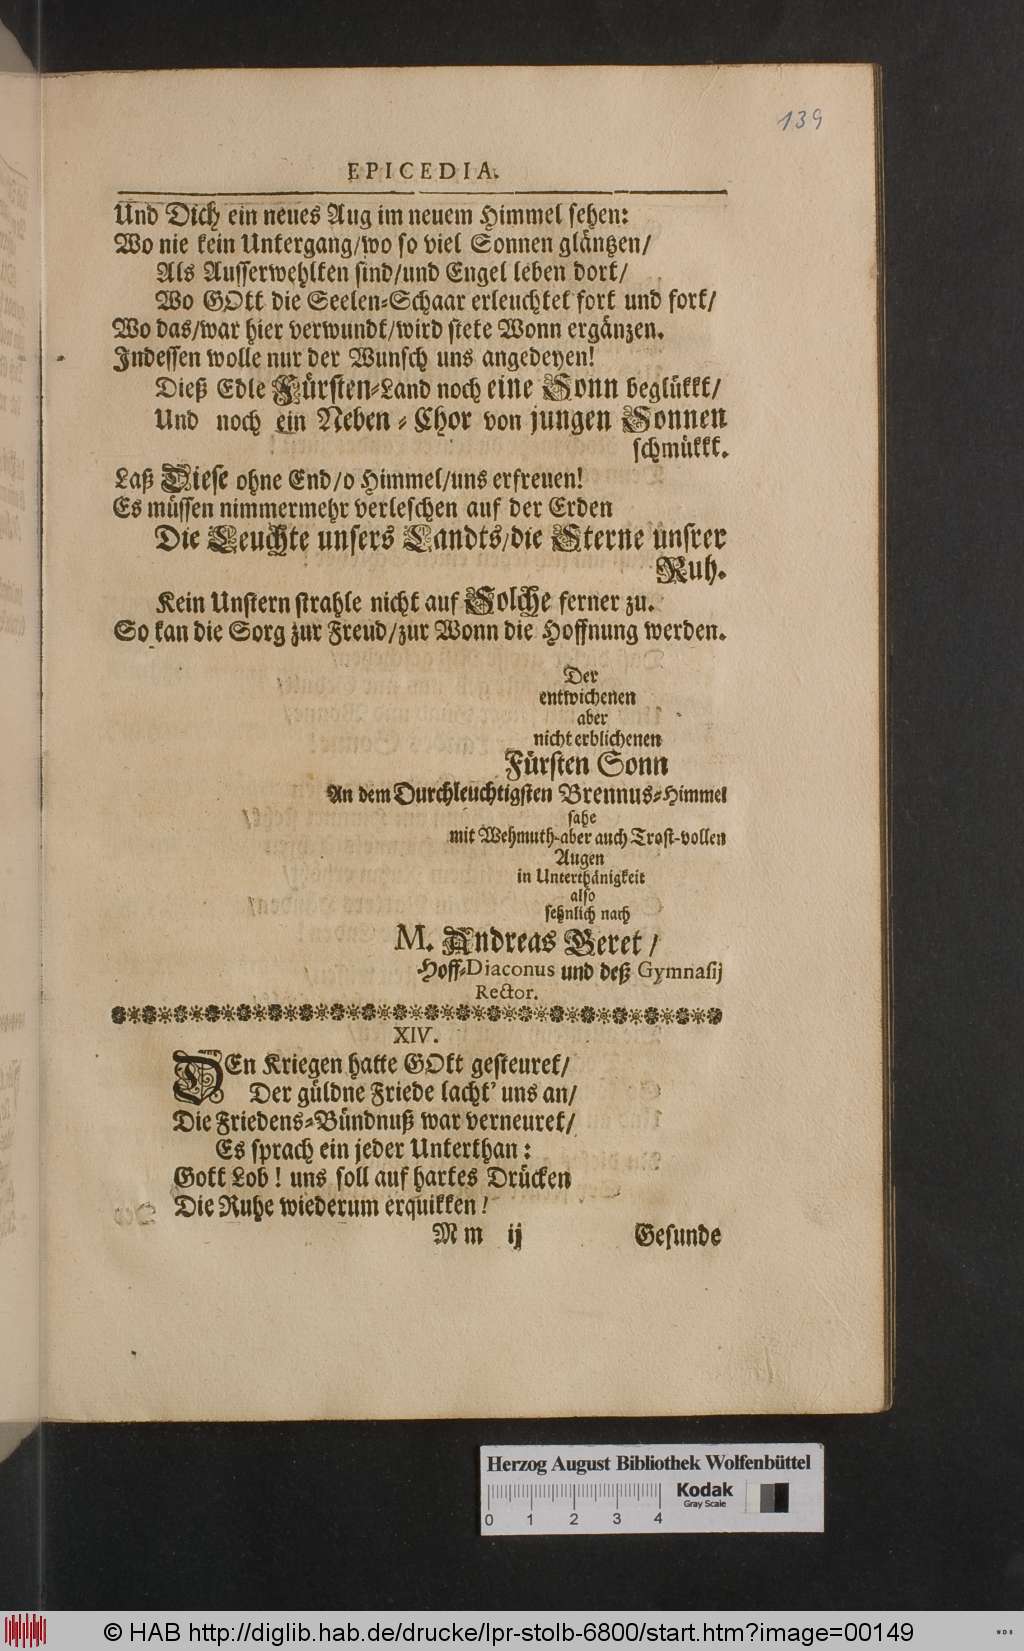 139
EPICEDIA.
Und Dich ein neues Aug im neuem Himmel sehen:
Wo nie kein Untergang/wo so viel Sonnen gläntzen/
Als Ausserwehlten sind/und Engel leben dort/
Wo GOtt die Seelen-Schaar erleuchtet fort und fort/
Wo das/war hier verwundt/wird stete Wonn ergäntzen.
Indessen wolle nur der Wunsch uns angedeyen!
Dieß Edle Fürsten-Land noch eine Sonn beglükkt/
Und noch ein Neben-Chor von jungen Sonnen
schmükkt.
Laß Diese ohne End/o Himmel/uns erfreuen!
Es müssen nimmermehr verleschen auf der Erden
Die Leuchte unsers Landts/die Sterne unsrer
Ruh.
Kein Unstern strahle nicht auf Solche ferner zu.
So kan die Sorg zur Freud/zur Wonn die Hoffnung werden.
Der
entwichenen
aber
nicht erblichenen
Fürsten Sonn
An dem Durchleuchtigsten Brennus-Himmel
sahe
mit Wehmuth-aber auch Trost-vollen
Augen
in Unterthänigkeit
also
sehnlich nach
M. Andreas Beret /
Hoff-Diaconus und deß Gymnasij
Rector.
XIV.
DEn Kriegen hatte GOtt gesteuret/
Der güldne Friede lacht' uns an/
Die Friedens-Bündnuß war verneuret/
Es sprach ein jeder Unterthan:
Gott Lob! uns soll auf hartes Drücken
Die Ruhe wiederum erquikken!
M m ij Gesunde
Herzog August Bibliothek Wolfenbüttel
Kodak
Gray Scale
0 1 2 3 4
© HAB http://diglib.hab.de/drucke/lpr-stolb-6800/start.htm?image=00149